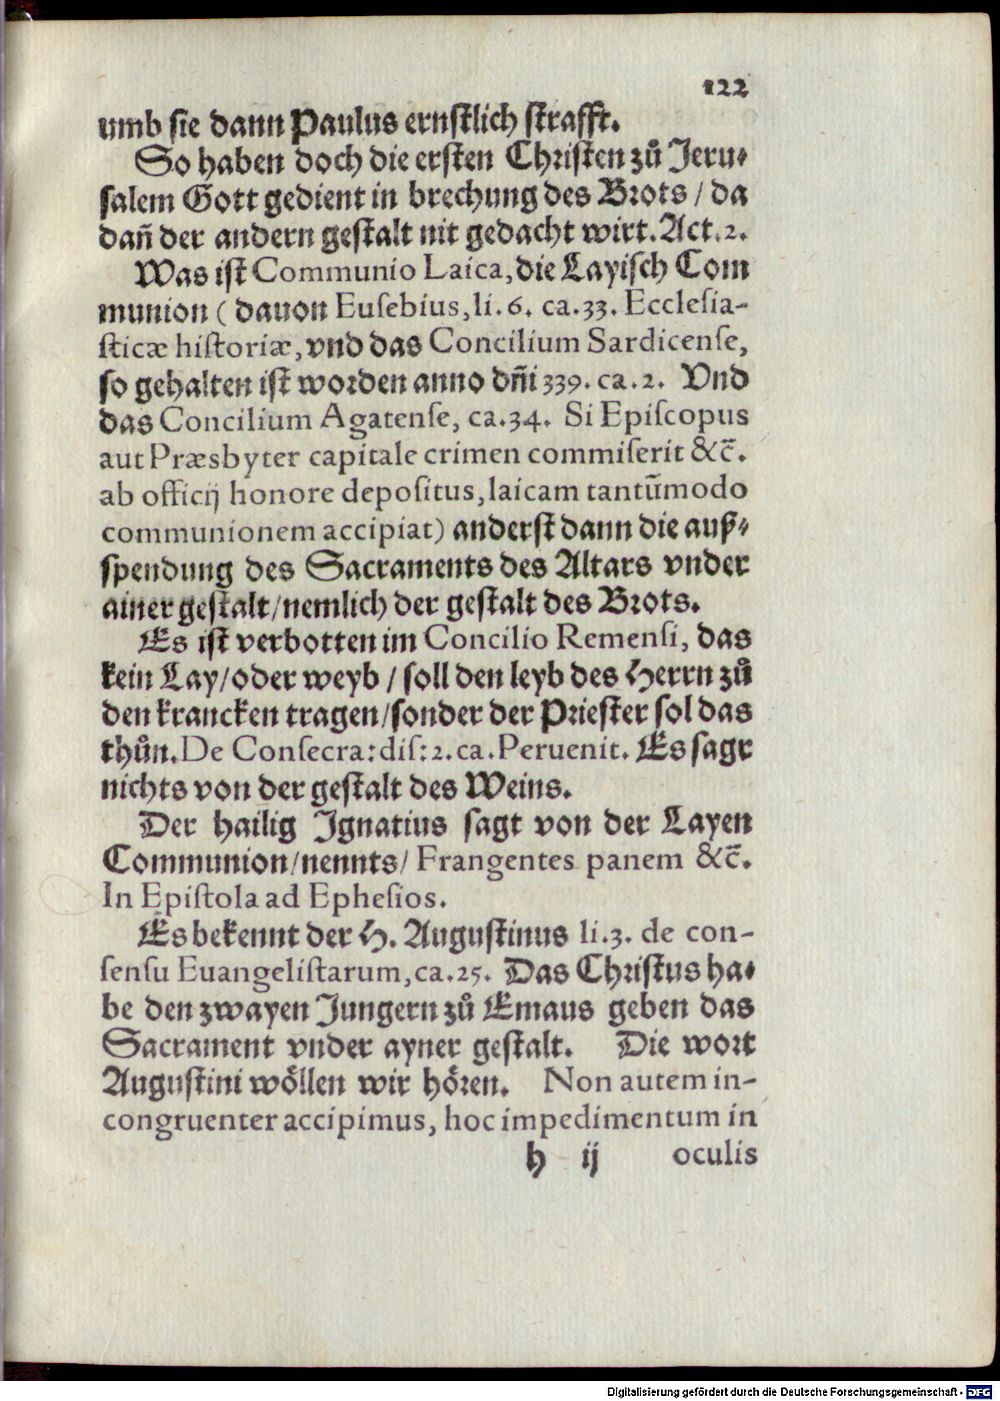 122
umb sie dann Paulus ernstlich strafft.
So haben doch die ersten Christen zů Jeru-
salem Gott gedient in brechung des Brots / da
dañ der andern gestalt nit gedacht wirt. Act. 2.
Was ist Communio Laica, die Layisch Com
munion ( dauon Eusebius, li. 6. ca. 33. Ecclesia-
sticæ historiæ, vnd das Concilium Sardicense,
so gehalten ist worden anno dñi 339. ca. 2. Vnd
das Concilium Agatense, ca. 34. Si Episcopus
aut Præsbyter capitale crimen commiserit &c̃.
ab officij honore depositus, laicam tantũmodo
communionem accipiat) anderst dann die auß-
spendung des Sacraments des Altars vnder
ainer gestalt / nemlich der gestalt des Brots.
Es ist verbotten im Concilio Remensi, das
kein Lay / oder weyb / soll den leyb des Herrn zů
den krancken tragen / sonder der Priester sol das
thůn. De Consecra: dis: 2. ca. Peruenit. Es sagt
nichts von der gestalt des Weins.
Der hailig Ignatius sagt von der Layen
Communion / nennts / Frangentes panem &c̃.
In Epistola ad Ephesios.
Es bekennt der H. Augustinus li. 3. de con-
sensu Euangelistarum, ca. 25. Das Christus ha-
be den zwayen Jungern zů Emaus geben das
Sacrament vnder ayner gestalt. Die wort
Augustini wöllen wir hören. Non autem in-
congruenter accipimus, hoc impedimentum in
h ij oculis
Digitalisierung gefördert durch die Deutsche Forschungsgemeinschaft - DFG